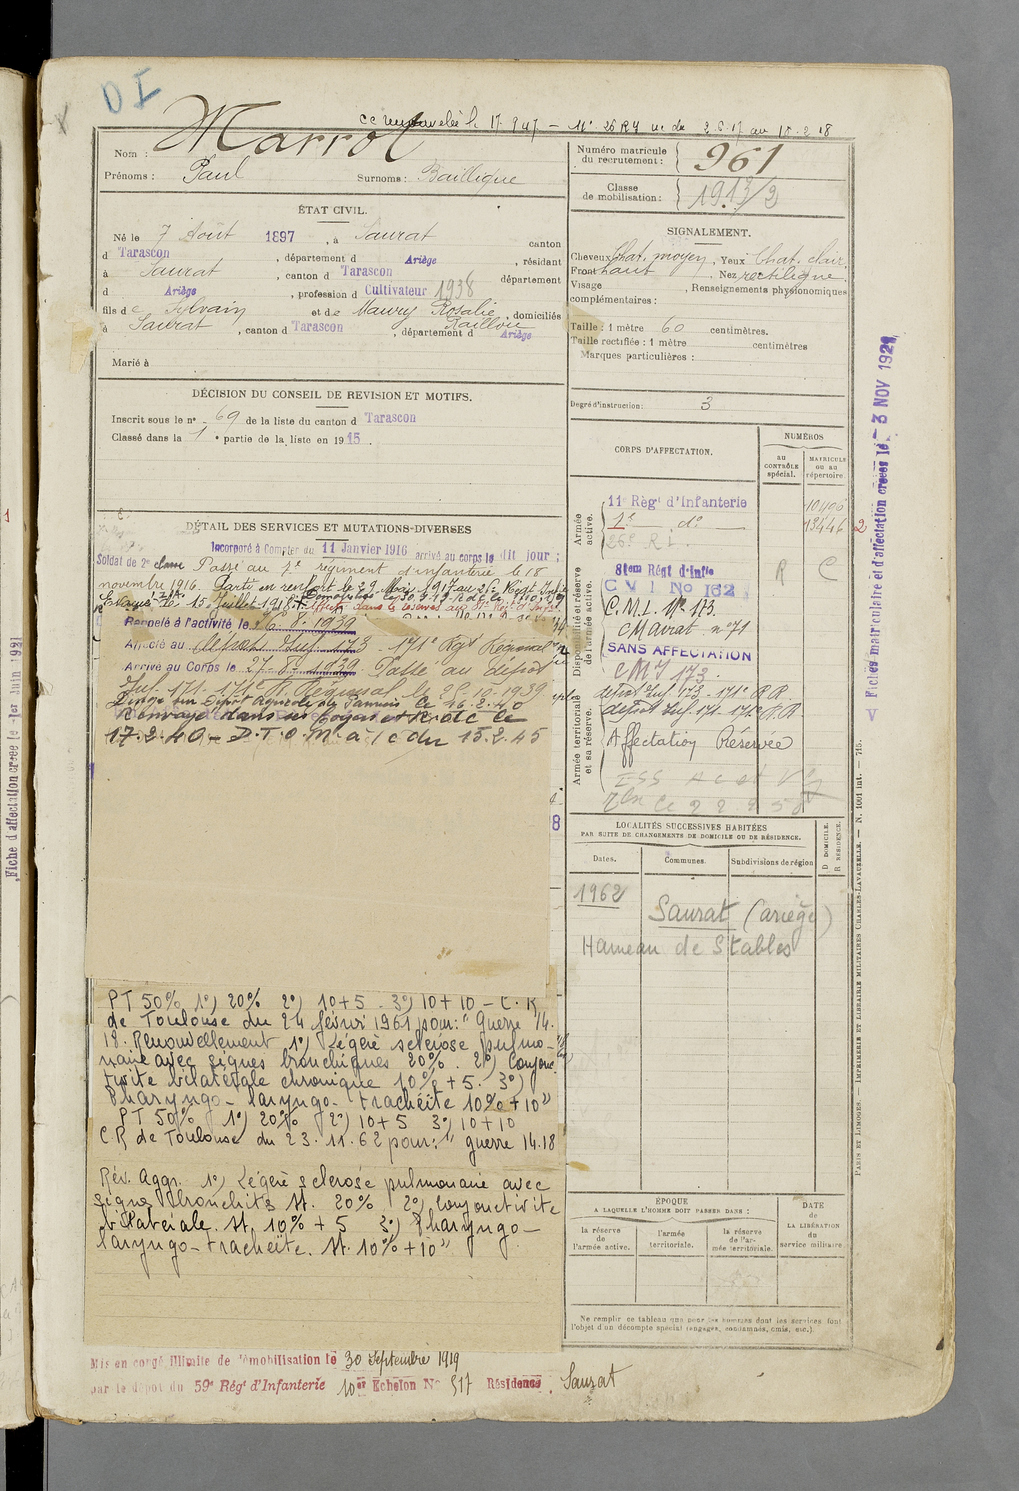 D I
cc renouvelée le 17.9.47 – 11e 26 RI
Marrot
Nom :
Prénoms : Paul Surnoms : Baillique
Numéro matricule du recrutement : 961
Classe de mobilisation : 1913/2
ÉTAT CIVIL.
Né le 7 Août 1897, à Saurat canton
d Tarascon, département d Ariège, résidant
à Saurat, canton d Tarascon département
d Ariège, profession d Cultivateur 1938
fils de Sylvain et de Maury Rosalie, domiciliés
à Saurat, canton d Tarascon, département d Ariège
Marié à
SIGNALEMENT.
Cheveux chat. moyen, Yeux chat. clair,
Front haut Nez rectiligne
Visage , Renseignements physionomiques
complémentaires :
Taille : 1 mètre 60 centimètres.
Taille rectifiée : 1 mètre centimètres
Marques particulières :
Degré d'instruction : 3
DÉCISION DU CONSEIL DE REVISION ET MOTIFS.
Inscrit sous le n° 69 de la liste du canton d Tarascon
Classé dans la 1e partie de la liste en 1915.
DÉTAIL DES SERVICES ET MUTATIONS DIVERSES
Incorporé à Compter du 11 Janvier 1916 arrivé au corps le dit jour ;
Soldat de 2e classe Passé au 7e régiment d'infanterie le 18
novembre 1916. Parti en renfort le 29 Mai 1917 au 26e Regt Inf
Evacué le 15 Juillet 1918
Rappelé à l'activité le 26.8.1939
Affecté au dépôt Inf. 173 171e Rgt Régional
Arrivé au Corps le 27.8.1939 Passé au dépôt
Inf. 171 171e R. Régional le 25.10.1939
Dirigé sur Dépôt Agricole de Pamiers le 16.2.40
Renvoyé dans ses foyers
17.2.40 – D.T.O.M. à/c du 15.2.45
PT 50% 1°) 20% 2°) 10+5 - 3°) 10+10 – C.R
de Toulouse du 24 février 1961 pour : "Guerre 14.
18. Renouvellement 1°) Légère sclérose pulmo-
naire avec signes bronchiques 20%. 2°) Conjonc-
tivite bilatérale chronique 10% + 5. 3°)
Pharyngo-laryngo-trachéite 10% + 10"
PT 50% 1°) 20% 2°) 10+5 3°) 10+10
CR de Toulouse du 23.11.62 pour : "guerre 14.18
Rév. Aggr. 1°) Légère sclérose pulmonaire avec
signes bronchites st. 20% 2°) Conjonctivite
bilatérale. st. 10% + 5 3°) Pharyngo-
laryngo-trachéite. st. 10% + 10"
Mis en congé illimité de démobilisation le 30 Septembre 1919
par le dépôt du 59e Régt d'Infanterie 10er Echelon No 517 Résidence, Saurat
CORPS D'AFFECTATION.
NUMÉROS
AU CONTRÔLE spécial.
MATRICULE ou au répertoire.
Armée active.
11e Régt d'Infanterie
1e do 13446 2
26e R.I.
Disponibilité et réserve de l'armée active.
81em Régt d'Inftie R C
C V I No 162
C.M.I. No 173
CMavrat no 71
SANS AFFECTATION
CMI 173.
Armée territoriale et sa réserve.
dépôt Inf. 173 - 171e R.R.
dépôt Inf. 171 - 171e R.R.
Affectation Réservée
LOCALITÉS SUCCESSIVES HABITÉES
PAR SUITE DE CHANGEMENTS DE DOMICILE OU DE RÉSIDENCE.
Dates. Communes. Subdivisions de région D DOMICILE. R RÉSIDENCE.
1962 Saurat (ariège)
Hameau de Stables
ÉPOQUE
A LAQUELLE L'HOMME DOIT PASSER DANS :
la réserve de l'armée active. l'armée territoriale. la réserve de l'armée territoriale.
DATE de LA LIBÉRATION du service militaire
Ne remplir ce tableau que pour les hommes dont les services font
l'objet d'un décompte spécial (engagés, condamnés, omis, etc.).
V Fiches matriculaire et d'affectation créées le - 3 NOV 1921
PARIS ET LIMOGES. — IMPRIMERIE ET LIBRAIRIE MILITAIRES CHARLES-LAVAUZELLE. — N. 1001 int. — 715.
Fiche d'affectation créée le 1er Juin 1921